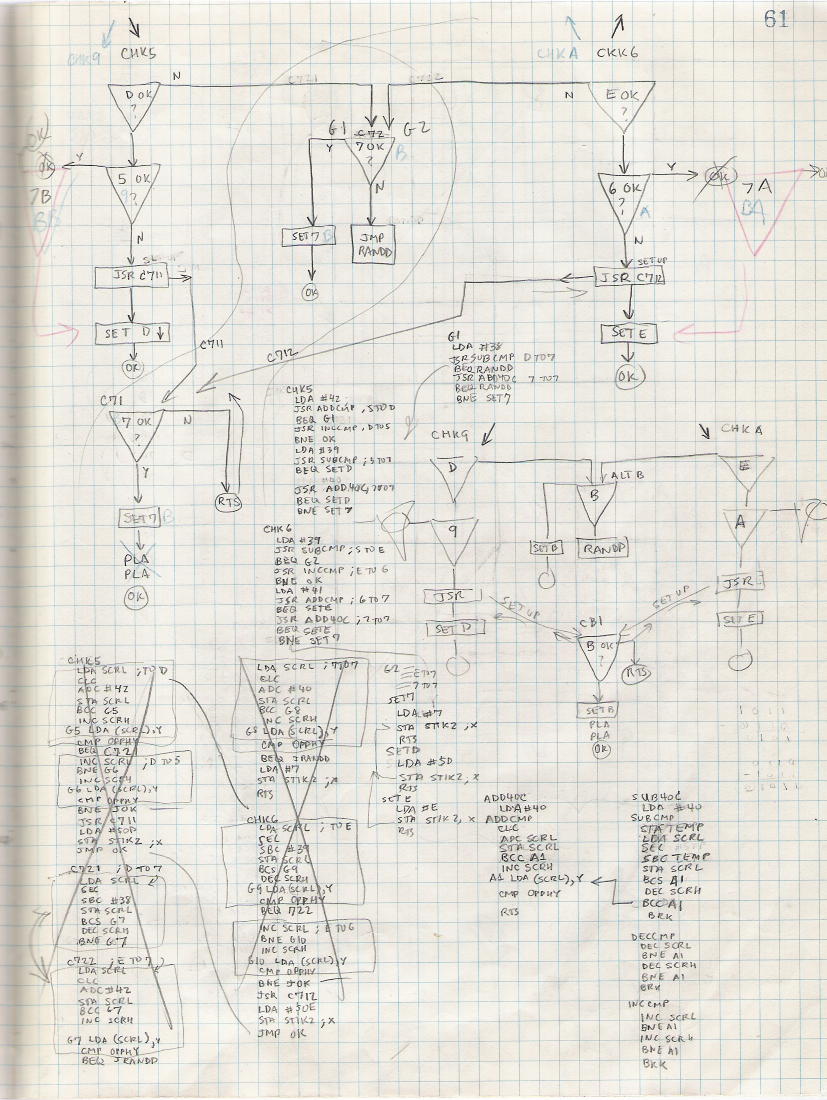 61
CHK9 CHK5
CHKA CKK6
N C721 C722 N
D OK
?
E OK
?
G1 C72 G2
7 OK
?
B
Y
N
OK
Y
5 OK
9?
N
7B
BB
6 OK
?
A
Y
N
OK
7A
BA
SET7 B
JMP
RANDD
OK
JSR C711
SET UP
JSR C712
SET D
OK
SET E
OK
C711
C712
C71
7 OK
?
N
Y
RTS
SET7 B
PLA
PLA
OK
G1
LDA #38
JSR SUBCMP D TO 7
BEQ RANDD
JSR ADD40C 7 TO 7
BEQ RANDD
BNE SET7
CHK5
LDA #42
JSR ADDCMP ; 5 TO D
BEQ G1
JSR INCCMP ; D TO 5
BNE OK
LDA #39
JSR SUBCMP ; 5 TO 7
BEQ SETD
JSR ADD40C ; 7 TO 7
BEQ SETD
BNE SET7
CHK6
LDA #39
JSR SUBCMP ; 5 TO E
BEQ G2
JSR INCCMP ; E TO 6
BNE OK
LDA #41
JSR ADDCMP ; 6 TO 7
BEQ SETE
JSR ADD40C ; 7 TO 7
BEQ SETE
BNE SET7
CHK9
CHKA
D
ALT B
B
E
9
A
SET B
RANDD
JSR
SET D
SET UP
SET UP
JSR
SET E
CB1
B OK
?
RTS
SET B
PLA
PLA
OK
CHK5
LDA SCRL ; TO D
CLC
ADC #42
STA SCRL
BCC G5
INC SCRH
G5 LDA (SCRL),Y
CMP OPPHY
BEQ C721
INC SCRL ; D TO 5
BNE G6
INC SCRH
G6 LDA (SCRL),Y
CMP OPPHY
BNE JOK
JSR C711
LDA #$0D
STA STIK2 ,X
JMP OK
C721 ; D TO 7
LDA SCRL
SEC
SBC #38
STA SCRL
BCS G7
DEC SCRH
BNE G7
C722 ; E TO 7
LDA SCRL
CLC
ADC #42
STA SCRL
BCC G7
INC SCRH
G7 LDA (SCRL),Y
CMP OPPHY
BEQ JRANDD
LDA SCRL ; 7 TO 7
CLC
ADC #40
STA SCRL
BCC G8
INC SCRH
G8 LDA (SCRL),Y
CMP OPPHY
BEQ JRANDD
LDA #7
STA STIK2 ,X
RTS
CHK6
LDA SCRL ; TO E
SEC
SBC #39
STA SCRL
BCS G9
DEC SCRH
G9 LDA (SCRL),Y
CMP OPPHY
BEQ 722
INC SCRL ; E TO 6
BNE G10
INC SCRH
G10 LDA (SCRL),Y
CMP OPPHY
BNE JOK
JSR C712
LDA #$0E
STA STIK2 ,X
JMP OK
G2
E TO 7
7 TO 7
SET7
LDA #7
STA STIK2, X
RTS
SETD
LDA #$D
STA STIK2, X
RTS
SETE
LDA #E
STA STIK2, X
RTS
ADD40C
LDA #40
ADDCMP
CLC
ADC SCRL
STA SCRL
BCC A1
INC SCRH
A1 LDA (SCRL),Y
CMP OPPHY
RTS
SUB40C
LDA #40
SUBCMP
STA TEMP
LDA SCRL
SEC
SBC TEMP
STA SCRL
BCS A1
DEC SCRH
BCC A1
BRK
DECCMP
DEC SCRL
BNE A1
DEC SCRH
BNE A1
BRK
INCCMP
INC SCRL
BNE A1
INC SCRH
BNE A1
BRK